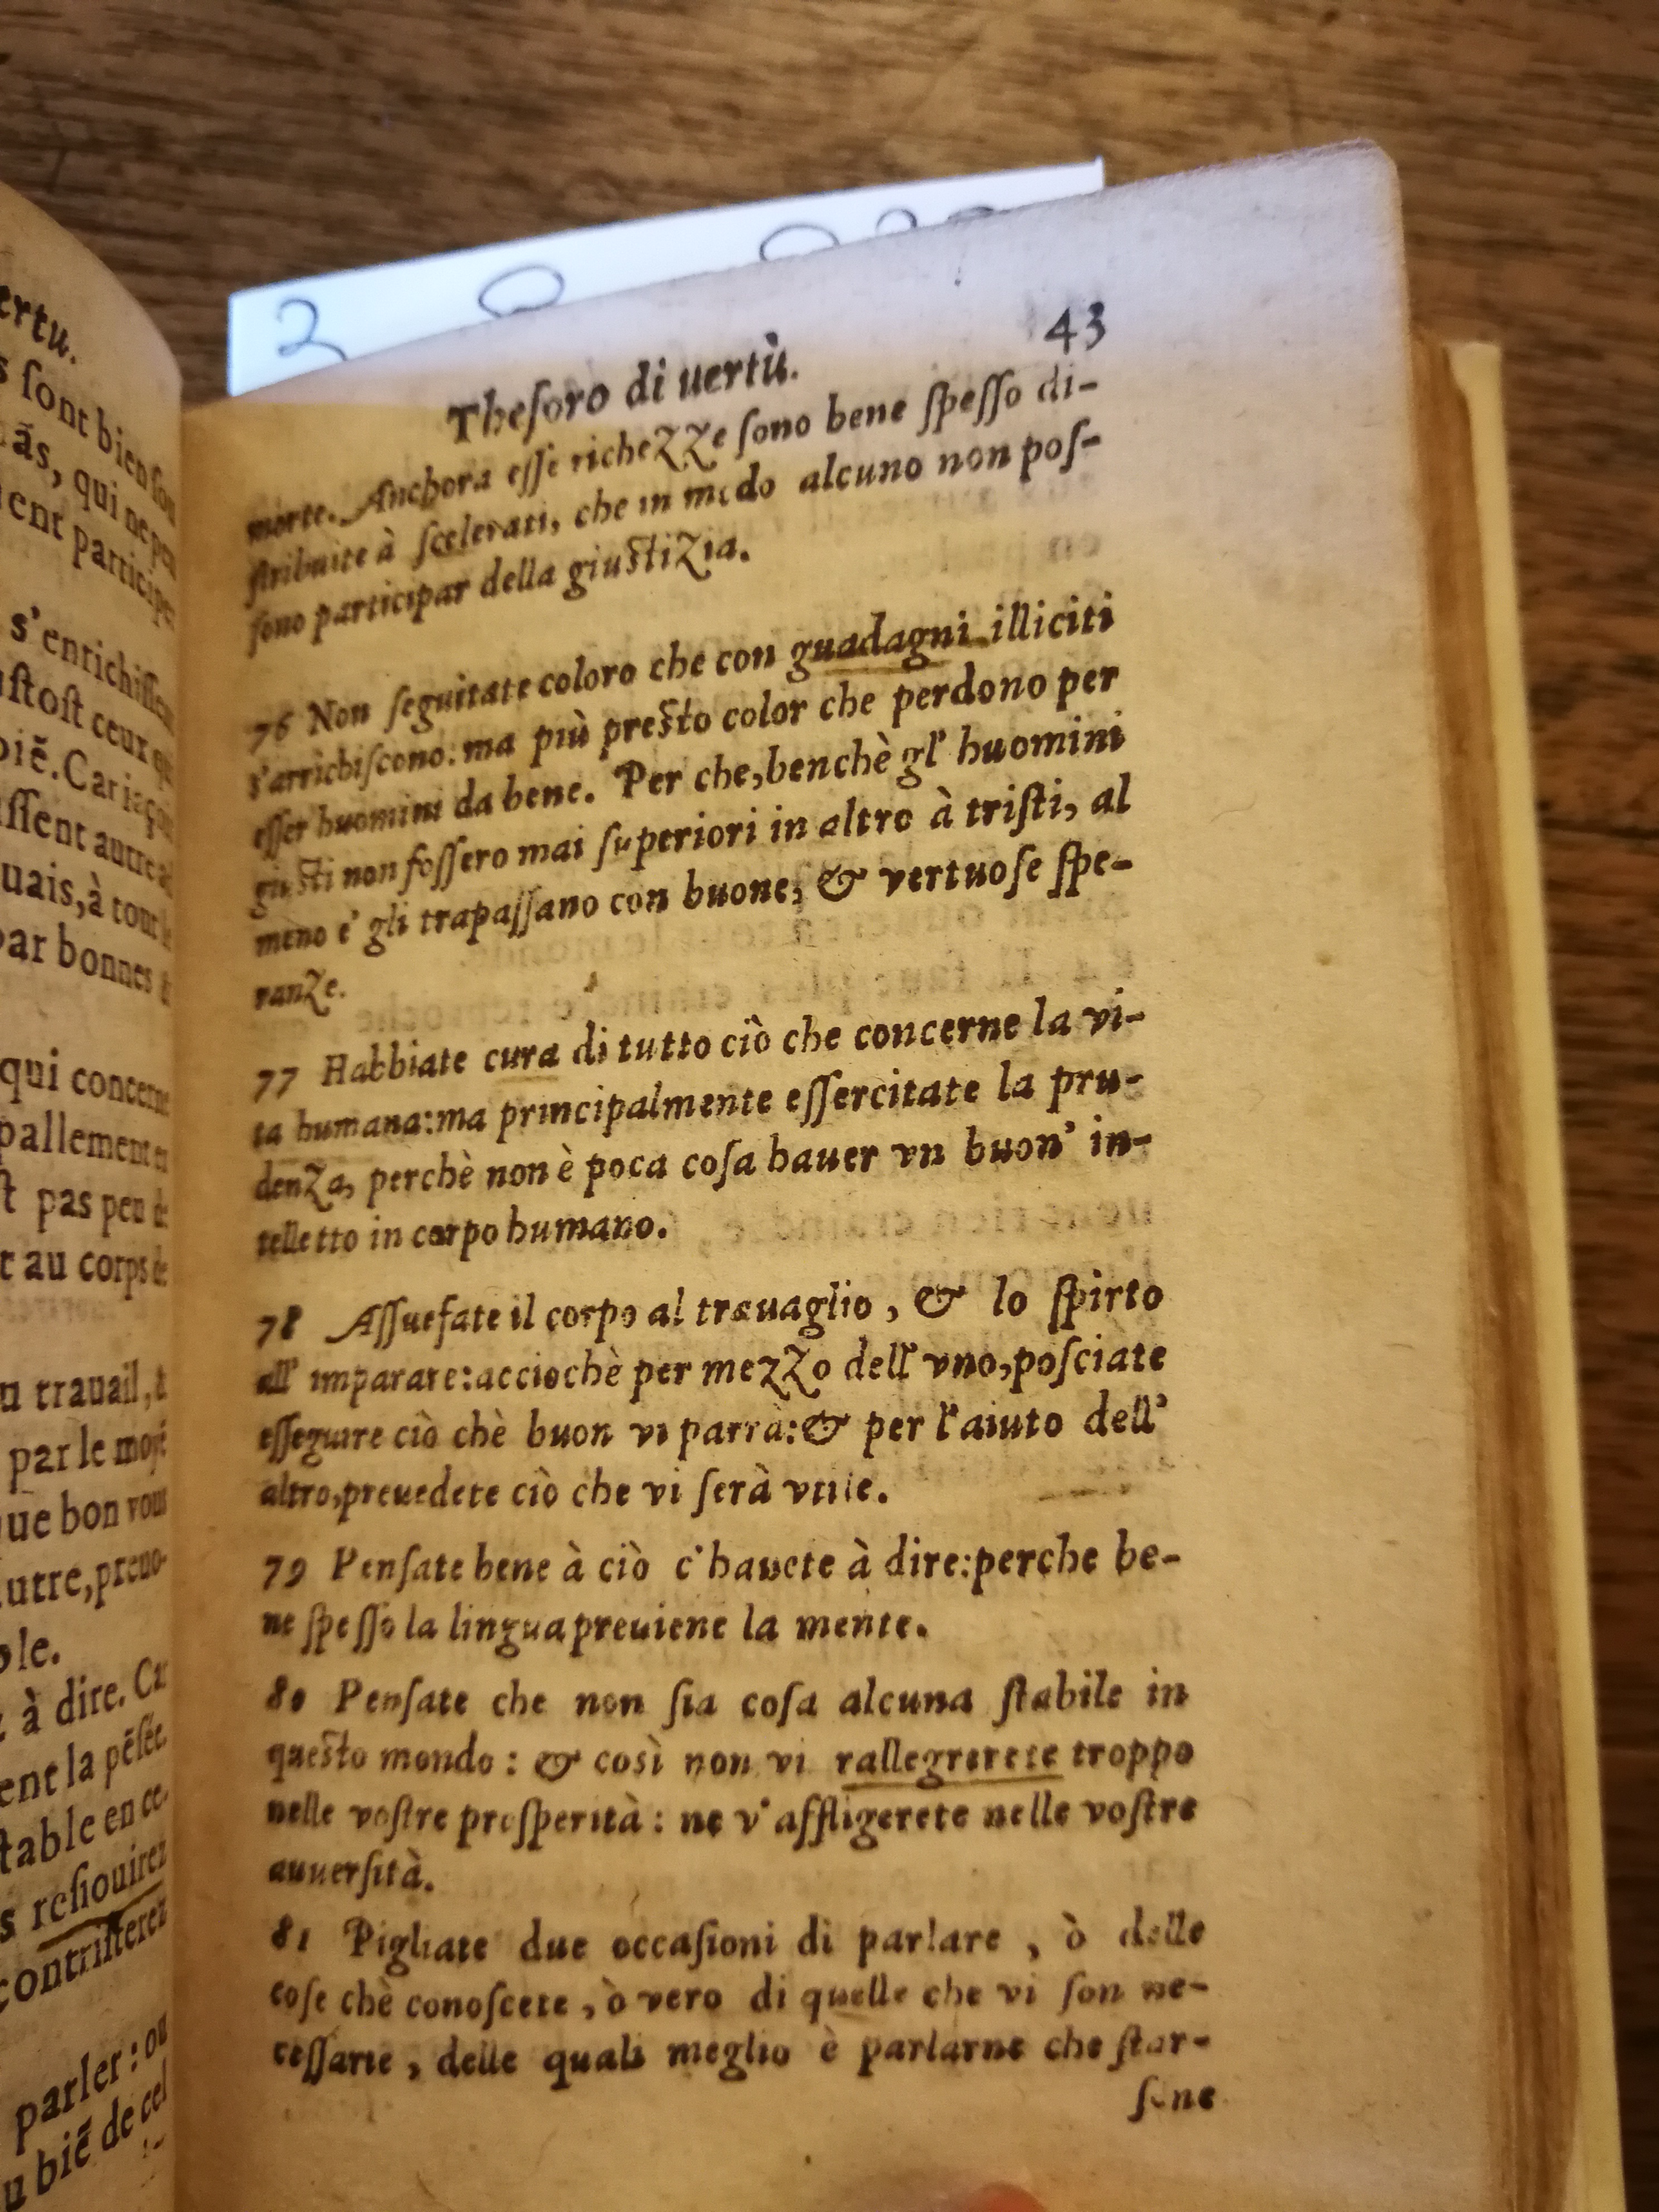 ertu.
s ſont bien ſou
ãs, qui ne peu
ent participer
s'enrichiſſent
uſtoſt ceux qu
biẽ. Car iaçoit
uais, à tout le
par bonnes &
qui concerne
pallement
ſt pas peu de
r au corps de
u trauail, &
par le moyẽ
que bon vous
utre, preuo-
ble.
à dire. Car
ent la pẽſée.
table en ce-
s reſiouirez
contriſterez
parler : ou
u biẽ de cel
2
43
Theſoro di uertù.
morte. Anchora eſſe richeZZe ſono bene ſpeſſo di-
ſtribuite à ſcelerati, che in modo alcuno non poſ-
ſono participar della giuſtiZia.
76 Non ſeguitate coloro che con guadagni illiciti
s'arrichiſcono: ma più preſto color che perdono per
eſſer huomini da bene. Per che, benchè gl' huomini
giuſti non foſſero mai ſuperiori in altro à triſti, al
meno e' gli trapaſſano con buone, & vertuoſe ſpe-
ranZe.
77 Habbiate cura di tutto ciò che concerne la vi-
ta humana: ma principalmente eſſercitate la pru-
denZa, perchè non è poca coſa hauer vn buon' in-
telletto in corpo humano.
78 Aſſuefate il corpo al trauaglio, & lo ſpirto
all' imparare: acciochè per mezZo dell' vno, poſciate
eſſeguire ciò chè buon vi parrà: & per l'aiuto dell'
altro, preuedete ciò che vi ſerà vtile.
79 Penſate bene à ciò c'hauete à dire: perche be-
ne ſpeſſo la lingua preuiene la mente.
80 Penſate che non ſia coſa alcuna ſtabile in
queſto mondo : & così non vi rallegrerete troppo
nelle voſtre proſperità : ne v'affligerete nelle voſtre
auuerſità.
81 Pigliate due occaſioni di parlare, ò delle
coſe chè conoſcete, ò vero di quelle che vi ſon ne-
ceſſarie, delle quali meglio è parlarne che ſtar-
ſene